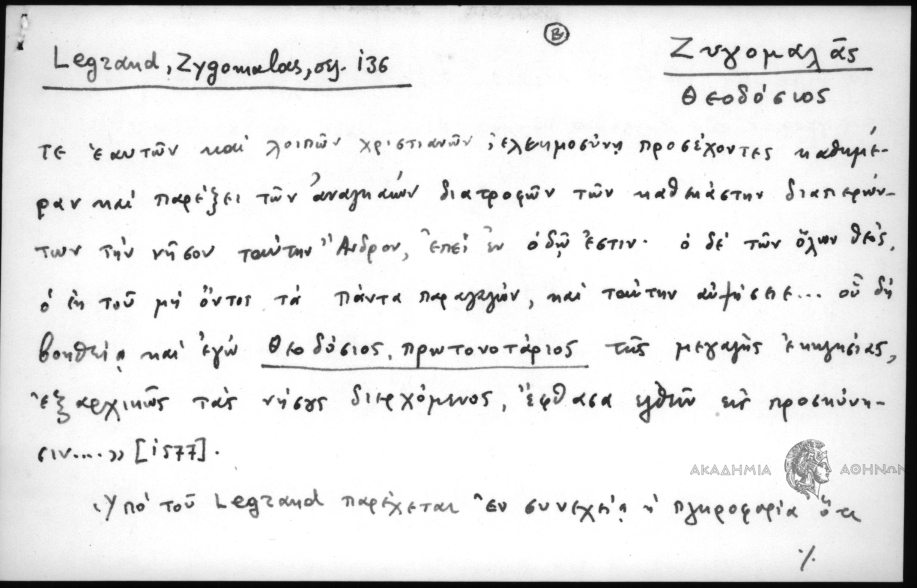 Β
Legrand, Zygomalas, σελ. 136
Ζυγομαλᾶς
Θεοδόσιος
τε ἑαυτῶν καὶ λοιπῶν χριστιανῶν, ἐλεημοσύνῃ προσέχοντες καθημέ-
ραν καὶ παρέξει τῶν ἀναγκαίων διατροφῶν τῶν καθεκάστην διαπερών-
των τὴν νῆσον ταύτην Ἄνδρον, ἐπεὶ ἐν ὁδῷ ἐστιν. ὁ δὲ τῶν ὅλων θεός,
ὁ ἐκ τοῦ μὴ ὄντος τὰ πάντα παραγαγών, καὶ ταύτην αὐξήσειε... οὗ δὴ
βοηθείᾳ καὶ ἐγὼ Θεοδόσιος, πρωτονοτάριος τῆς μεγάλης ἐκκλησίας,
ἐξαρχικῶς τὰς νήσους διερχόμενος, ἔφθασα ἐλθεῖν εἰς προσκύνη-
σιν....» [1577].
ΑΚΑΔΗΜΙΑ ΑΘΗΝΩΝ
Ὑπὸ τοῦ Legrand παρέχεται ἐν συνεχείᾳ ἡ πληροφορία ὅτι
·/.